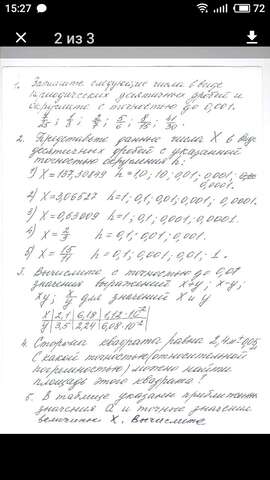 15:27
72
2 из 3
1. Запишите следующие числа в виде
периодических десятичных дробей и
округлите с точностью до 0,001.
2. Представьте данные числа X в виде
десятичных дробей с указанной
точностью округления h:
1) X = 137,30849 h = 10; 10; 0,01; 0,001;
0,0001.
2) X = 3,06527 h = 1; 0,1; 0,01; 0,001; 0,0001.
3) X = 0,63009 h = 1; 0,1; 0,001; 0,0001.
4) X = 2/3 h = 0,1; 0,01; 0,001.
5) X = 15/11 h = 0,1; 0,001; 0,01; 1.
3. Вычислите с точностью до 0,01
значения выражений x+y; x-y;
xy; x/y для значений X и y
X 2,1 6,18 1,12·10⁻²
y 3,5 2,24 6,08·10⁻²
4. Сторона квадрата равна 2,4м±0,05
С какой точностью (относительной
погрешностью) можно найти
площадь этого квадрата?
5. В таблице указаны приближенные
значения a и точные значения
величины X. Вычислите